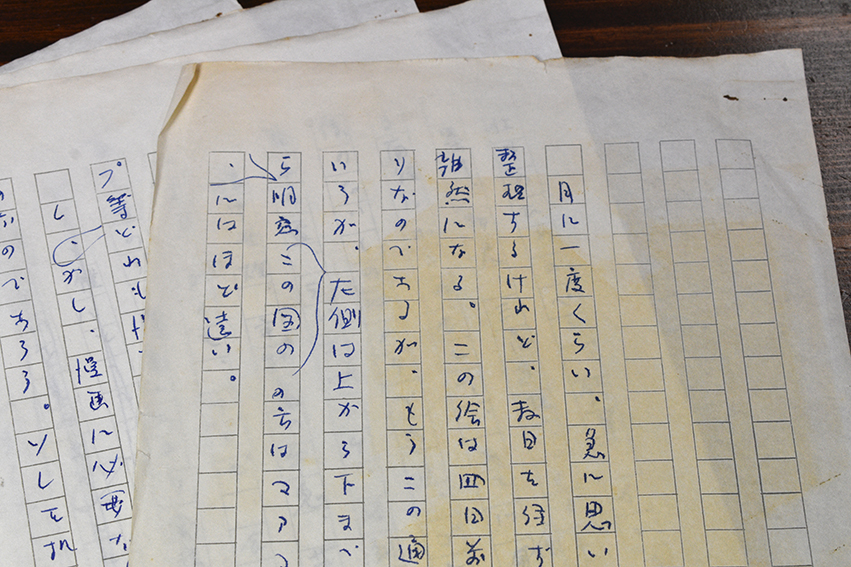 月に一度くらい、急に思い
整理するけれど、数日を経ず
雑然になる。この絵は四日前
りなのであるが、もうこの通
いるが、左側は上から下まで
ら明窓この国の の方はマア
、にはほど遠い。
プ等どれも
しかし、漫画に必要な
のであろう。そして